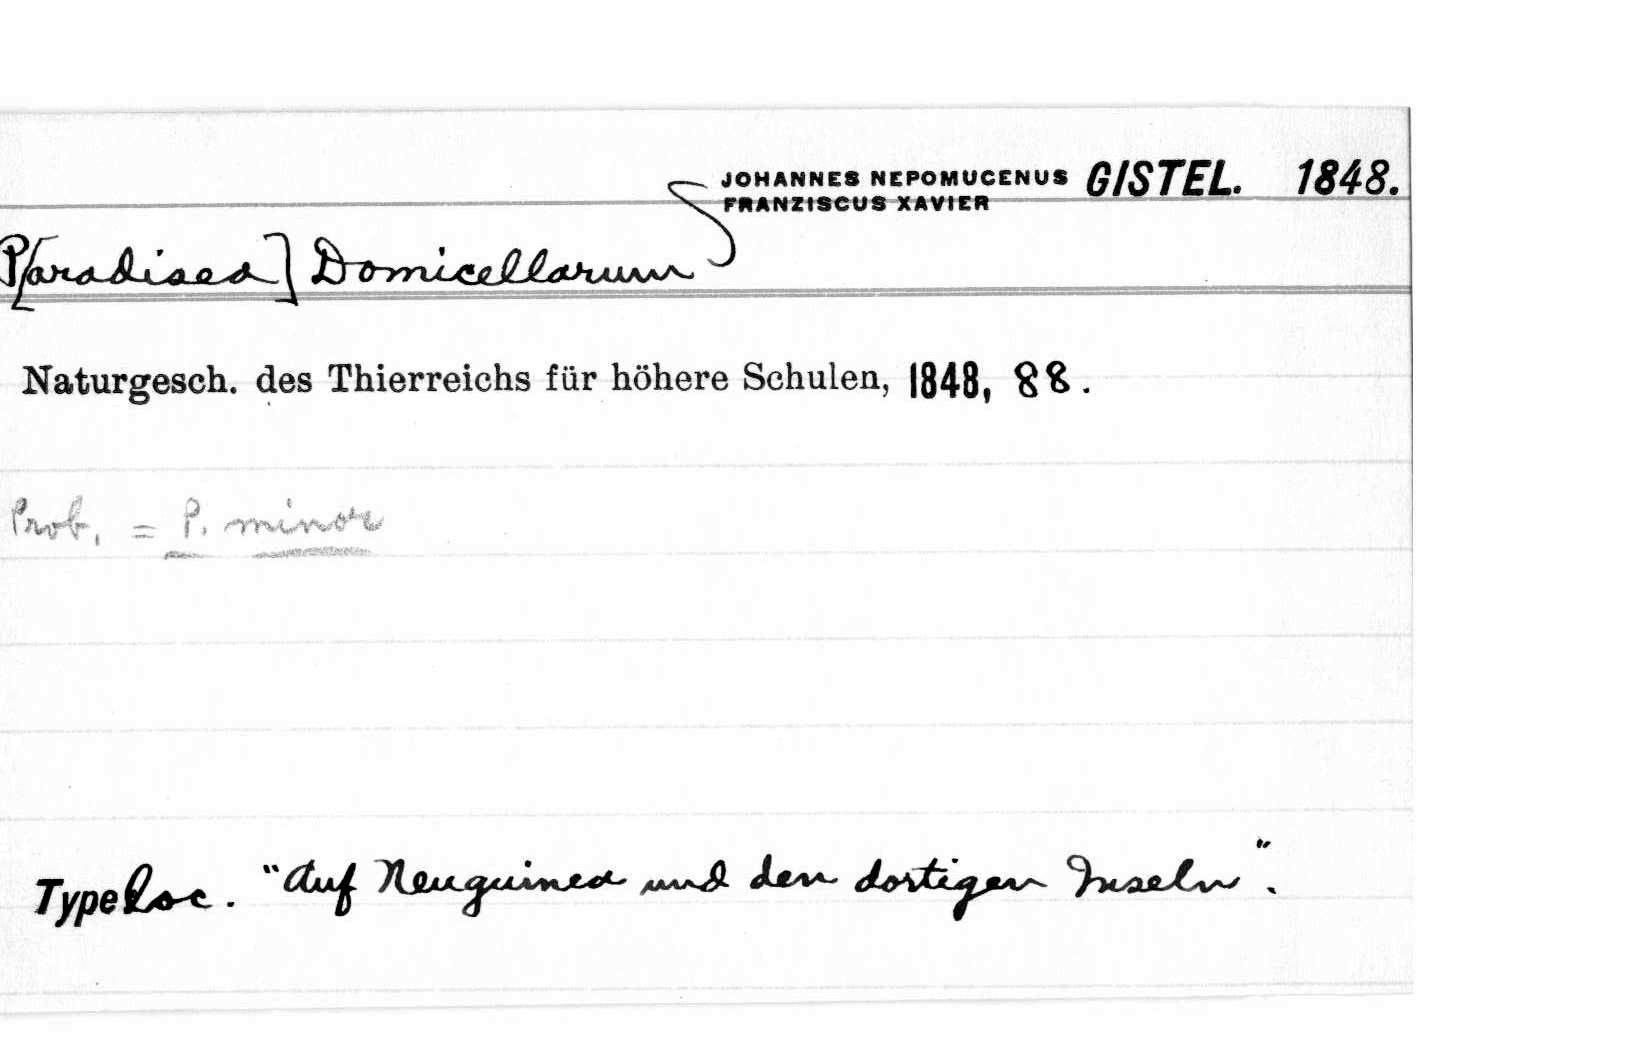 JOHANNES NEPOMUCENUS GISTEL. 1848.
FRANZISCUS XAVIER
P[aradisea] Domicellarum
Naturgesch. des Thierreichs für höhere Schulen, 1848, 88.
Prob. = P. minor
Type loc. "Auf Neuguinea und den dortigen Inseln".